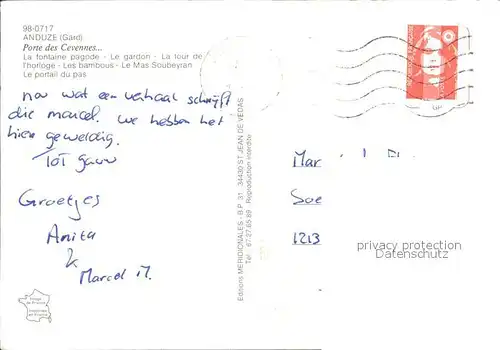 98-0717
ANDUZE (Gard)
Porte des Cevennes...
La fontaine pagode - Le gardon - La tour de
l'horloge - Les bambous - Le Mas Soubeyran
Le portail du pas
nou wat een verhaal schrijft
die marcel. we hebben het
hier geweldig.
Tot gauw
Groetjes
Anita
&
Marcel M.
Editions MERIDIONALES - B.P. 31 - 34430 ST JEAN DE VEDAS
Tél. : 67.27.65.89 Reproduction interdite
Mar
Soe
1213
privacy protection
Datenschutz